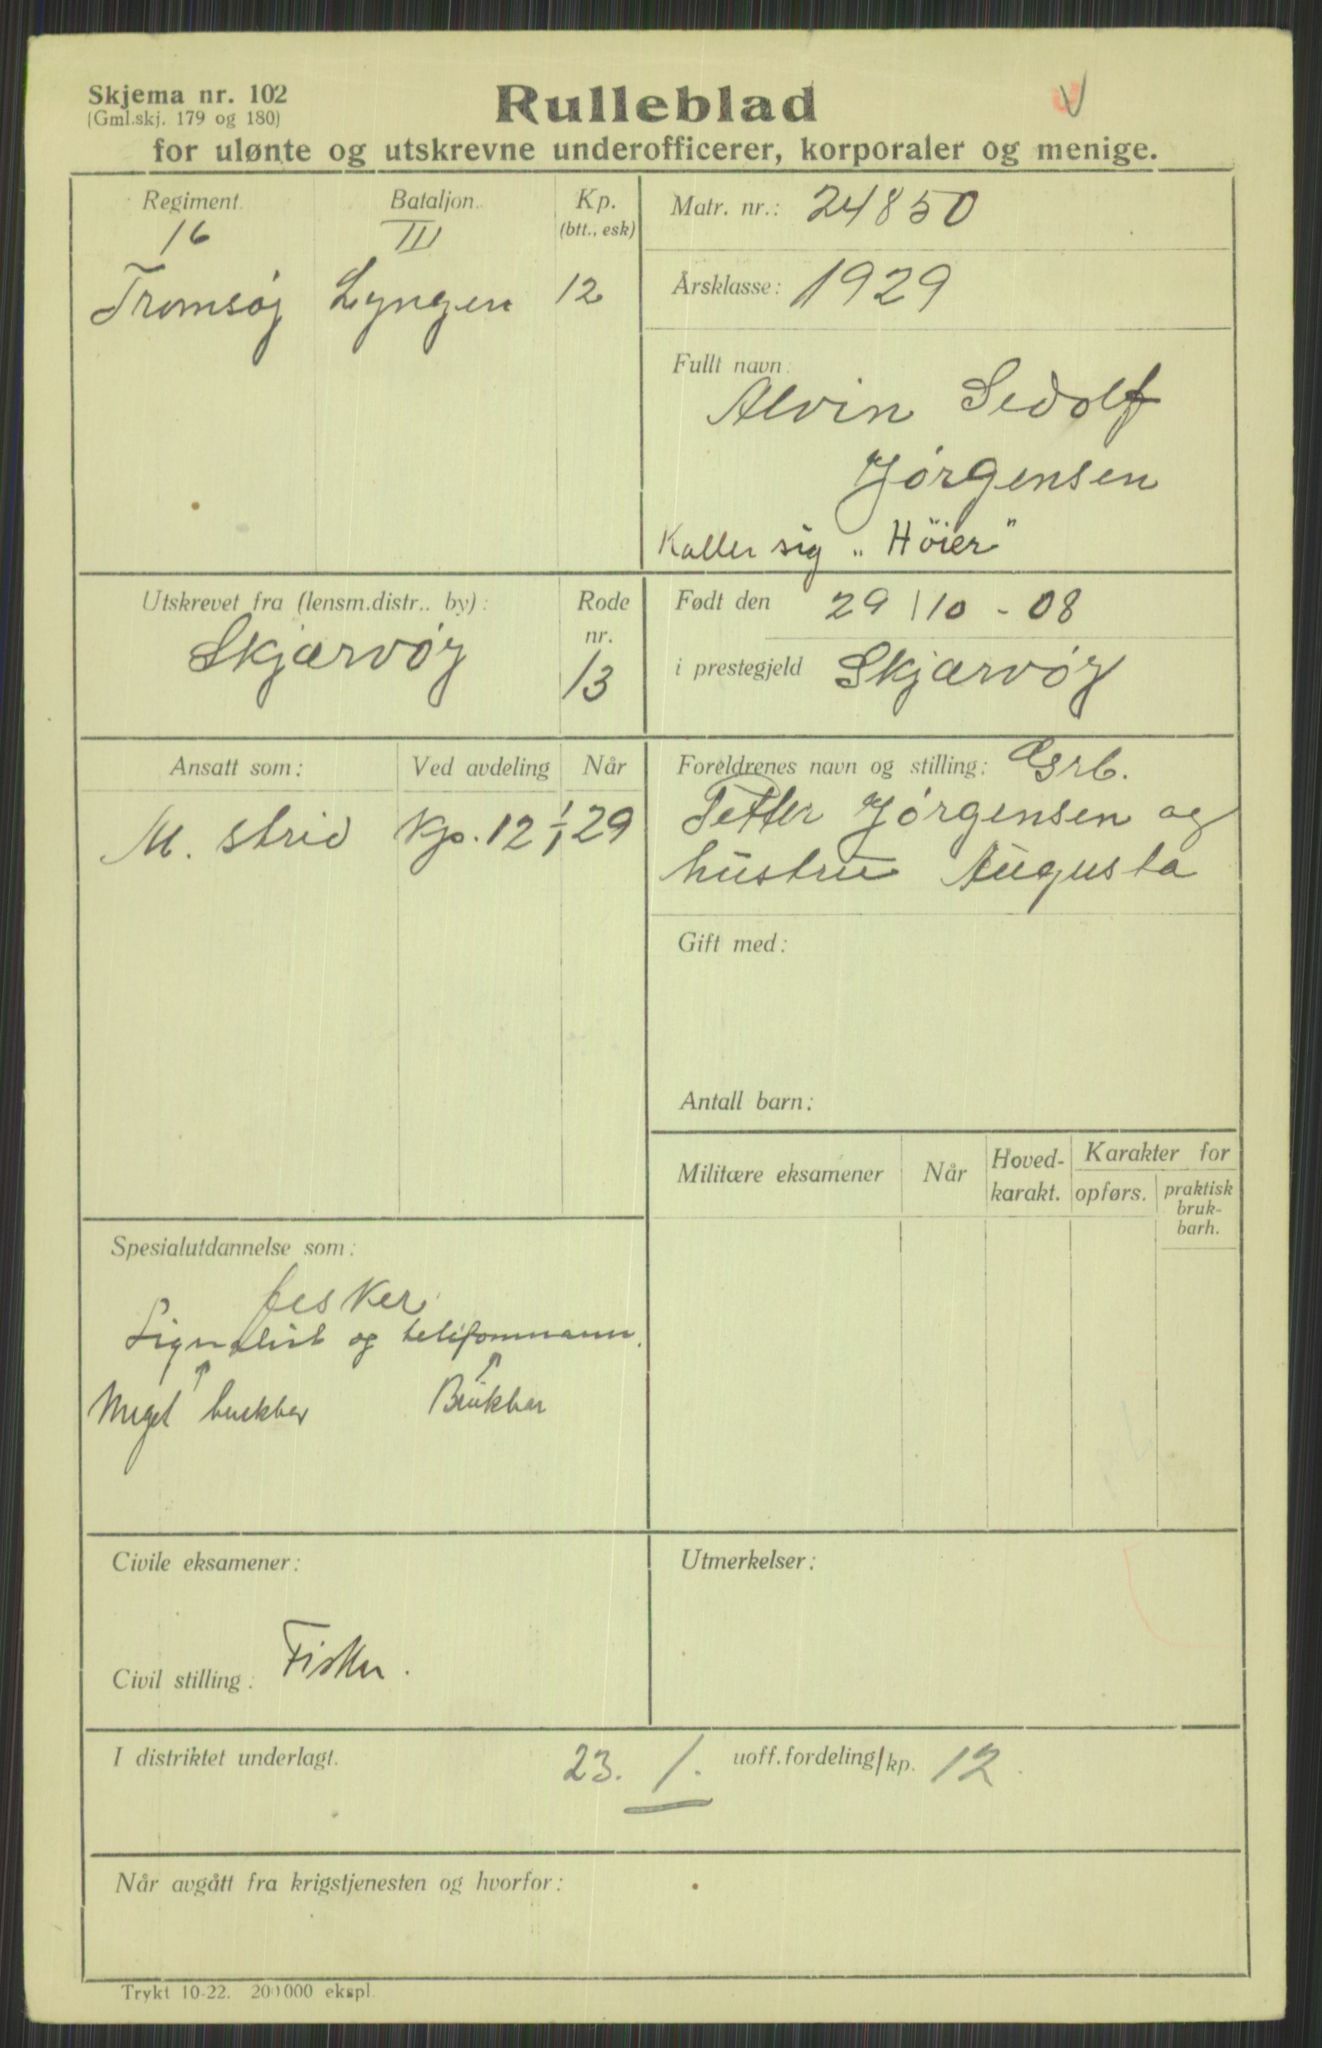 Skjema nr. 102
(Gml.skj. 179 og 180)
Rulleblad
for ulønte og utskrevne underofficerer, korporaler og menige.
Regiment.
16
Tromsøy
Bataljon.
III
Lyngen
Kp.
(btt., esk)
12
Matr. nr.: 24850
Årsklasse: 1929
Fullt navn:
Alvin Sedolf
Jörgensen
Kaller sig „Höier"
Utskrevet fra (lensm.distr.. by):
Skjærvöy
Rode
nr.
13
Født den 29/10-08
i prestegjeld Skjærvöy
Ansatt som:
Ved avdeling
Når
M. strid Kp. 12 1/1 29
Foreldrenes navn og stilling: Grb.
Petter Jörgensen og
hustru Augusta
Gift med:
Antall barn:
Militære eksamener
Når
Hoved-
karakt.
Karakter for
opførs.
praktisk
bruk-
barh.
Spesialutdannelse som:
fisker
Signalist og telefonmann.
↑ ↑
Meget brukbar Brukbar
Civile eksamener:
Civil stilling: Fisker.
Utmerkelser:
I distriktet underlagt. 23. 1. uoff.fordeling/kp. 12.
Når avgått fra krigstjenesten og hvorfor:
Trykt 10-22. 200000 ekspl.